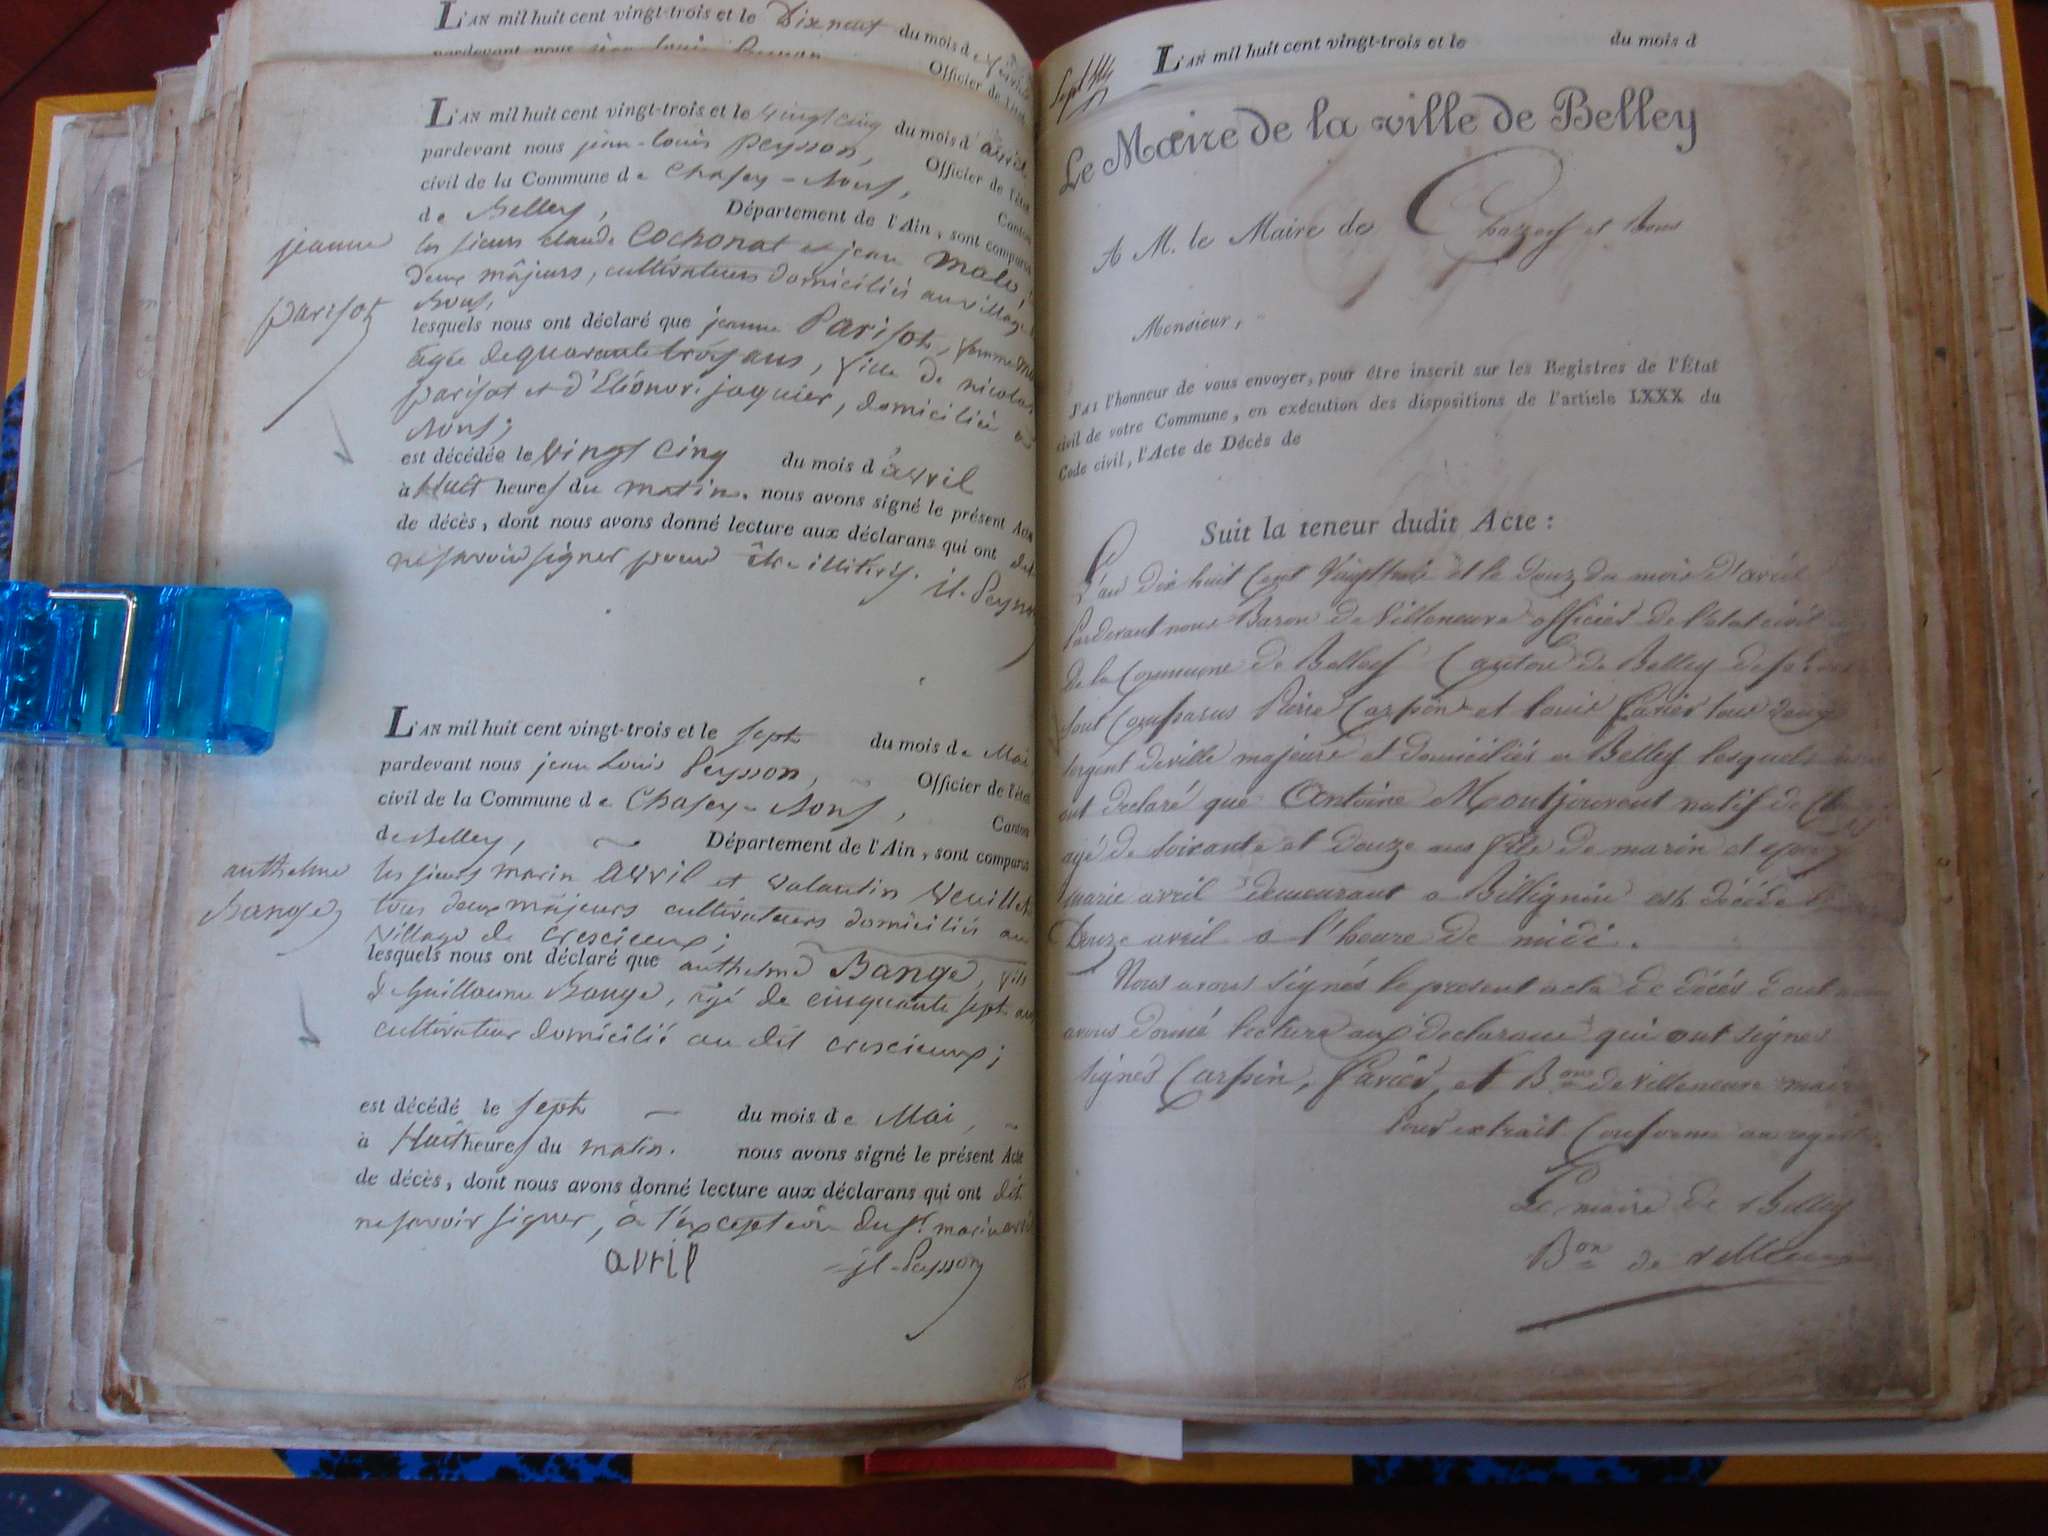 L'AN mil huit cent vingt-trois et le Dix neuf du mois d
pardevant nous jean louis Peysson
Officier de l'état
L'AN mil huit cent vingt-trois et le vingt cinq du mois d'avril
pardevant nous jean-louis peysson, Officier de l'état
civil de la Commune de Chasey-Bons, Canton
de Belley, Département de l'Ain, sont comparus
jeanne
parisot
les sieurs Claude Cochonat et jean Malo,
deux màjeurs, cultivateurs domiciliés au village
Bons,
lesquels nous ont déclaré que jeanne Parisot, femme
âgée de quarante trois ans, fille de nicolas
parisot et d'Eléonore jaquier, domiciliée à
Bons;
est décédée le vingt cinq du mois d'avril
à Huit heures du matin. nous avons signé le présent Acte
de décès, dont nous avons donné lecture aux déclarans qui ont dit
ne savoir signer pour être illiterés. jl. Peysson
L'AN mil huit cent vingt-trois et le sept du mois de Mai
pardevant nous jean Louis Peysson, Officier de l'état
civil de la Commune de Chasey-Bons, Canton
de Belley, Département de l'Ain, sont comparus
anthelme
Bange
les sieurs marin Avril et valantin veuillet
tous deux màjeurs cultivateurs domiciliés au
village de Crescieux;
lesquels nous ont déclaré que anthelme Bange, fils
de Guillaume Bange, âgé de cinquante sept ans
cultivateur domicilié au dit crescieux;
est décédé le sept du mois de Mai,
à Huit heures du matin. nous avons signé le présent Acte
de décès, dont nous avons donné lecture aux déclarans qui ont dit
ne savoir signer, à l'exception du sr. marin avril
avril jl-Peysson
L'AN mil huit cent vingt-trois et le du mois d
Le Maire de la ville de Belley
A M. le Maire de Chazey et Bons
Monsieur,
J'AI l'honneur de vous envoyer, pour être inscrit sur les Registres de l'État
civil de votre Commune, en exécution des dispositions de l'article LXXX du
Code civil, l'Acte de Décès de
Suit la teneur dudit Acte :
L'an dix huit Cent Vingt trois et le douze du mois d'avril
Pardevant nous Baron de Villeneuve officier de l'etat civil
de la Commune de Belley Canton de Belley
sont Comparus Pierre Carpin et louis Favier tous deux
sergent de ville majeurs et domiciliés a Belley lesquels nous
ont declaré que Antoine Montjouvent natif de
agé de soixante et douze ans fils de marin et
marie avril demeurant a Billignin est décédé le
Douze avril a l'heure de midi.
Nous avons signés le present acte de décés dont nous
avons donné lecture aux declarans qui ont signes
signés Carpin, Favier, et Bon de villeneuve maire
Pour extrait Conforme au registre
Le maire de Belley
Bon de villeneuve